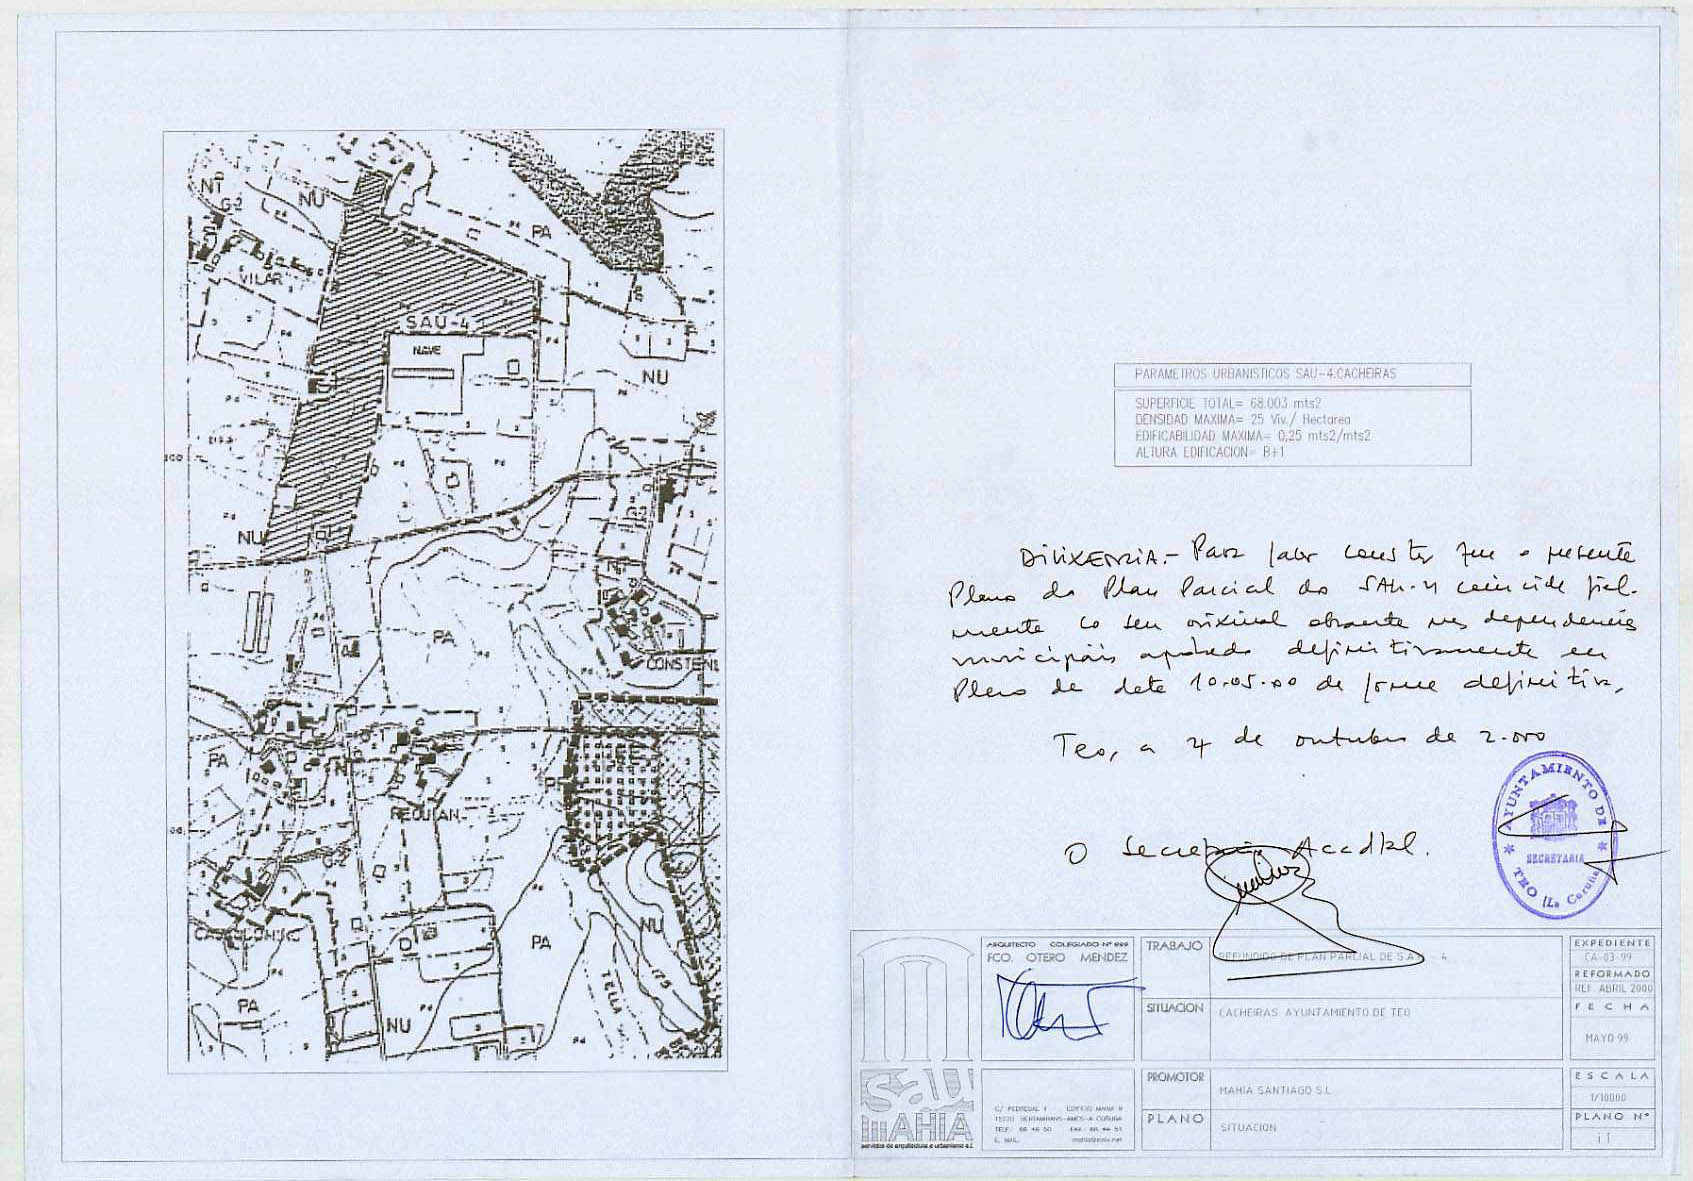 NT
NU
G-2
PA
VILAR
SAU-4
NAVE
NU
100
NU
G3
PA
CONSTENL
PA
N
PE
REGULAN
G-2
NU
PA
TELLA
175
PA
NU
PARAMETROS URBANISTICOS SAU-4.CACHEIRAS
SUPERFICIE TOTAL= 68.003 mts2
DENSIDAD MAXIMA= 25 Viv./ Hectarea
EDIFICABILIDAD MAXIMA= 0,25 mts2/mts2
ALTURA EDIFICACION= B+1
DILIXENZIA.- Para facer constar que o presente
Plano do Plan Parcial do SAU-4 coincide fiel-
mente co seu orixinal obrante nas dependencias
municipais aprobado definitivamente en
Pleno de data 10.05.00 de forma definitiva.
Teo, a 4 de outubro de 2.000
O Secretario Accdtal.
AYUNTAMIENTO DE
SECRETARIA
TEO (La Coruña)
ARQUITECTO COLEGIADO Nº 999
FCO. OTERO MENDEZ
TRABAJO
REFUNDIDO DE PLAN PARCIAL DE S.A. - 4
SITUACION
CACHEIRAS. AYUNTAMIENTO DE TEO
PROMOTOR
MAHIA SANTIAGO S.L.
PLANO
SITUACION
EXPEDIENTE
CA-03-99
REFORMADO
REF. ABRIL 2000
FECHA
MAYO 99
ESCALA
1/10000
PLANO Nº
i 1
sau
MAHIA
servicios de arquitectura e urbanismo s.l.
C/ PEDREGAL 1 EDIFICIO MAHIA II
15220 BERTAMIRANS-AMES-A CORUÑA
TELF.: 88 46 50 FAX.: 88 44 51
E. MAIL: